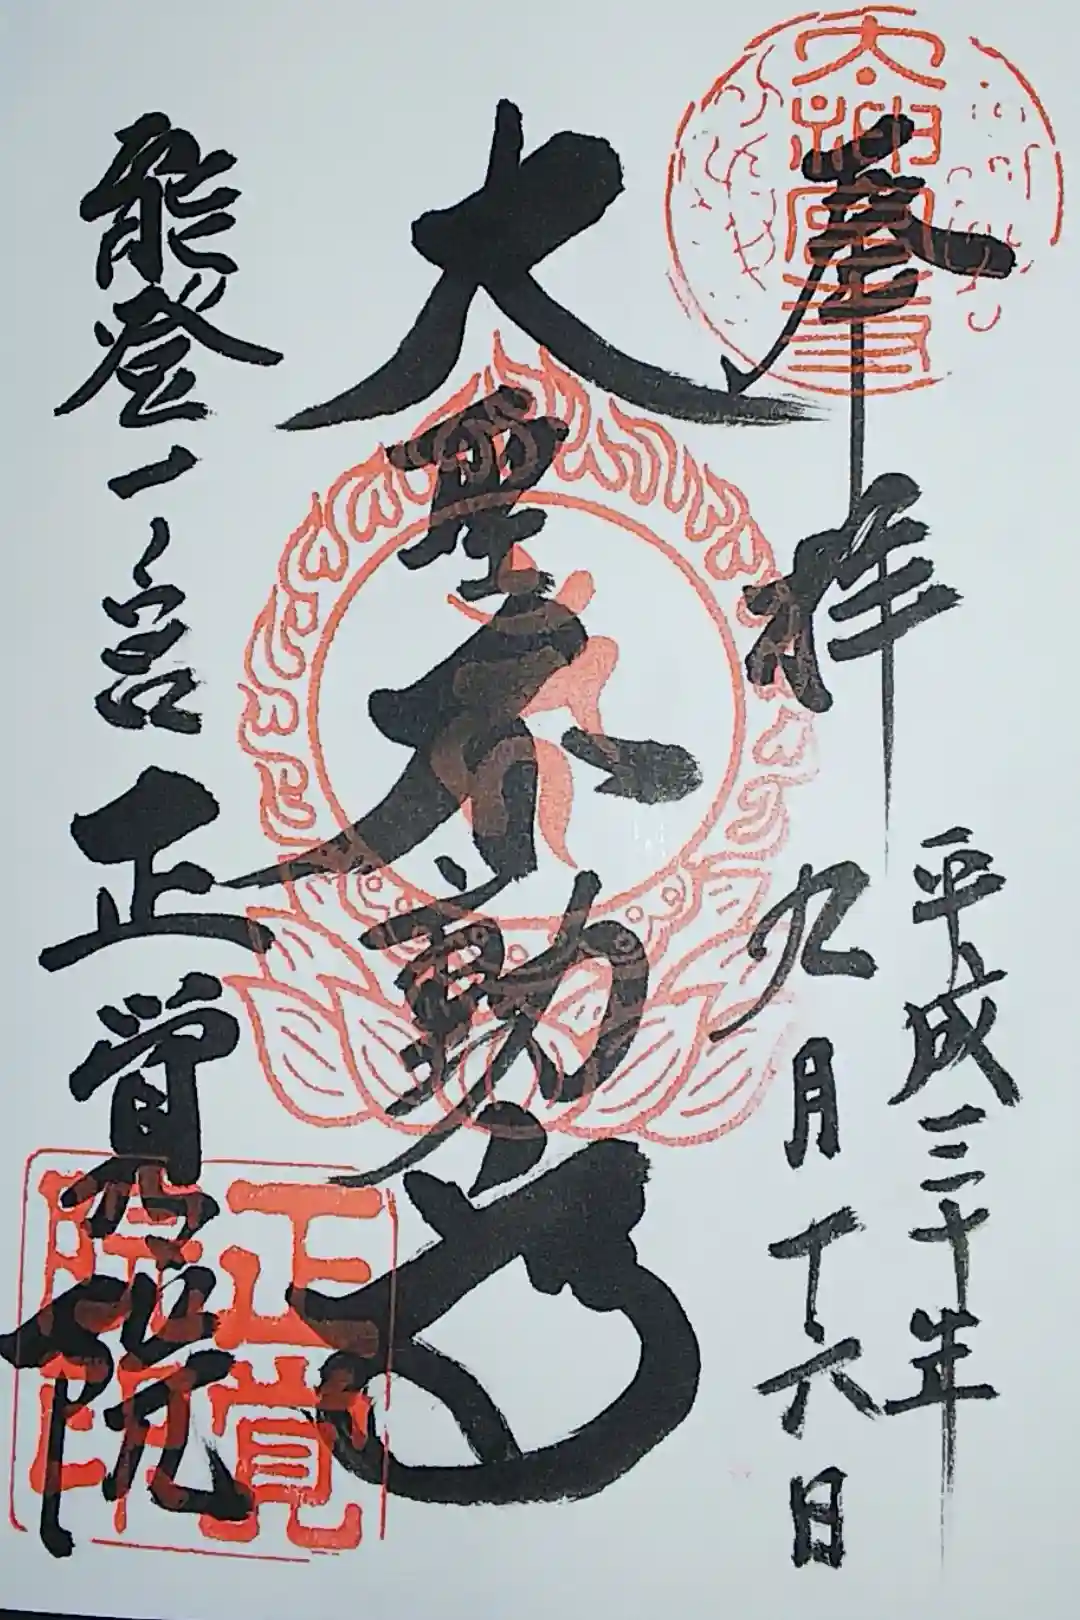 奉拝
平成三十年
九月十六日
大聖不動尊
能登一ノ宮
正覚院
正覚
院印